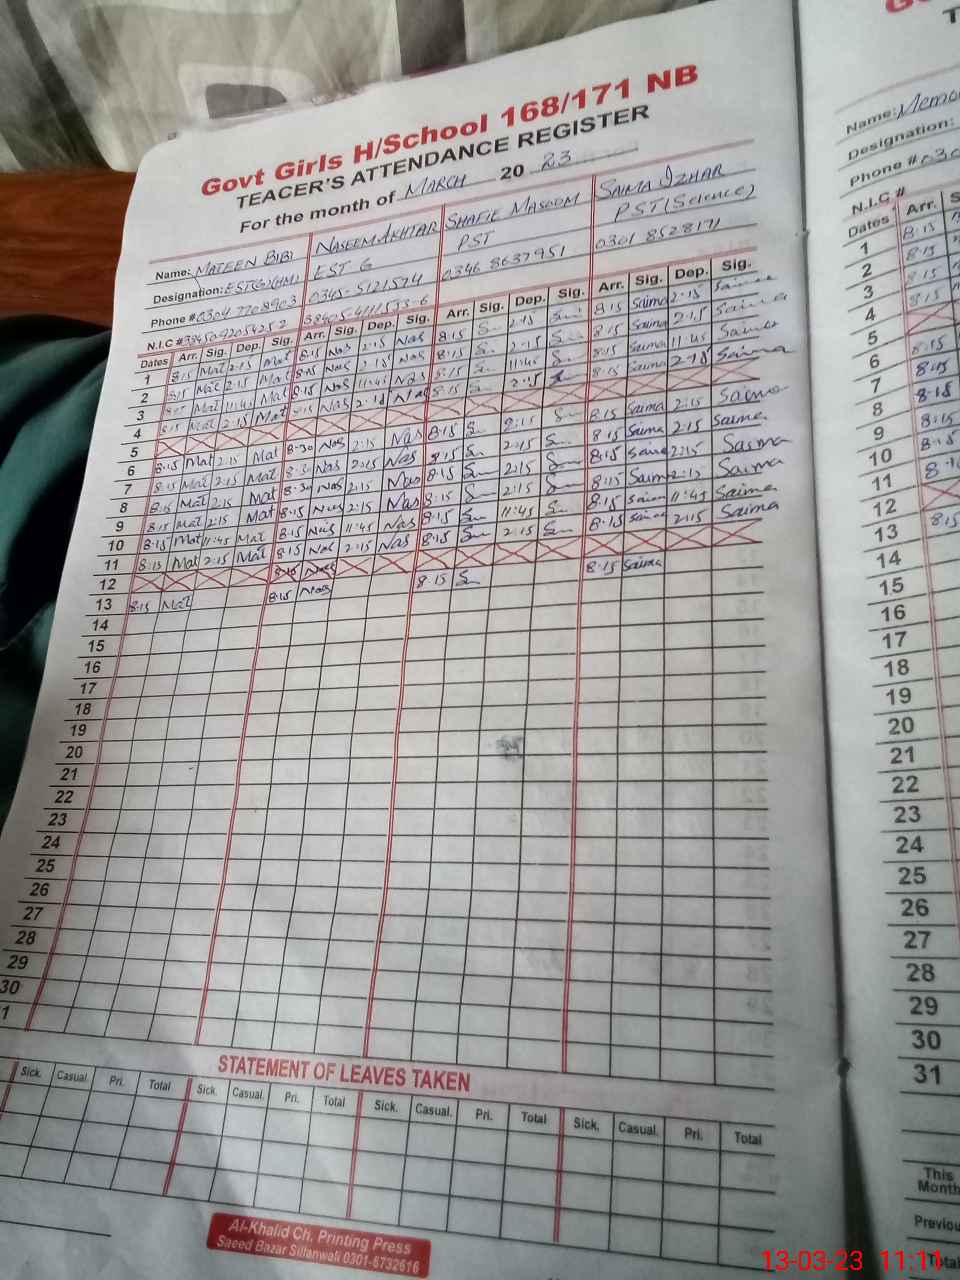 Govt Girls H/School 168/171 NB
TEACER'S ATTENDANCE REGISTER
For the month of MARCH 20 23
Name: MATEEN BIBI NASEEM AKHTAR SHAFIE MASOOM SAIMA IZHAR
Designation: EST(G)(HM) EST G PST PST (Science)
Phone # 0304 7708903 0345-5121574 0346 8637951 0301 8528171
N.I.C #
Dates Arr. Sig. Dep. Sig. Arr. Sig. Dep. Sig. Arr. Sig. Dep. Sig. Arr. Sig. Dep. Sig.
1 8:15 Mat 2:15 Mat 8:15 Nas 2:15 Nas 8:15 2:15 8:15 Saima 2:15 Saima
2 8:15 Mat 2:15 Mat 8:15 Nas 2:15 Nas 8:15 2:15 8:15 Saima 2:15 Saima
3 Mat 11:45 Mat 8:15 Nas 11:45 Nas 8:15 11:45 8:15 Saima 11:45 Saima
4 8:15 Mat 2:15 Mat 8:15 Nas 2:15 Nas 8:15 2:15 8:15 Saima 2:15 Saima
5
6 8:15 Mat 2:15 Mat 8:30 Nas 2:15 Nas 8:15 2:15 8:15 Saima 2:15 Saima
7 8:15 Mat 2:15 Mat 8:30 Nas 2:15 Nas 8:15 2:15 8:15 Saima 2:15 Saima
8 8:15 Mat 2:15 Mat 8:30 Nas 2:15 Nas 8:15 2:15 8:15 Saima 2:15 Saima
9 8:15 Mat 2:15 Mat 8:15 Nas 2:15 Nas 8:15 2:15 8:15 Saima 2:15 Saima
10 8:15 Mat 11:45 Mat 8:15 Nas 11:45 Nas 8:15 11:45 8:15 Saima 11:45 Saima
11 8:15 Mat 2:15 Mat 8:15 Nas 2:15 Nas 8:15 2:15 8:15 Saima 2:15 Saima
12 8:15 Nas
13 8:15 Mat 8:15 Nas 8:15 8:15 Saima
14
15
16
17
18
19
20
21
22
23
24
25
26
27
28
29
30
1
STATEMENT OF LEAVES TAKEN
Sick. Casual. Pri. Total Sick. Casual. Pri. Total Sick. Casual. Pri. Total Sick. Casual. Pri. Total
Al-Khalid Ch. Printing Press
Saeed Bazar Sillanwali 0301-6732616
Name:
Designation:
Phone # 030
N.I.C #
Dates Arr. S
1 8:15
2 8:15
3 8:15
4 8:15
5
6 8:15
7 8:15
8 8:15
9 8:15
10 8:15
11
12
13 8:15
14
15
16
17
18
19
20
21
22
23
24
25
26
27
28
29
30
31
This
Month
Previou
Total
13-03-23 11:11